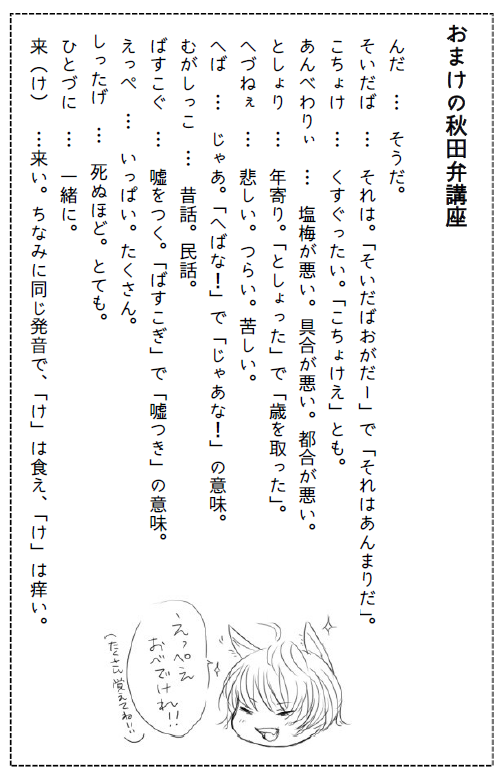 おまけの秋田弁講座
んだ … そうだ。
そいだば … それは。「そいだばおがだー」で「それはあんまりだ」。
こちょけ … くすぐったい。「こちょけえ」とも。
あんべわりぃ … 塩梅が悪い。具合が悪い。都合が悪い。
としょり … 年寄り。「としょった」で「歳を取った」。
へづねぇ … 悲しい。つらい。苦しい。
へば … じゃあ。「へばな!」で「じゃあな!」の意味。
むがしっこ … 昔話。民話。
ばすこぐ … 嘘をつく。「ばすこぎ」で「嘘つき」の意味。
えっぺ … いっぱい。たくさん。
しったげ … 死ぬほど。とても。
ひとづに … 一緒に。
来(け) …来い。ちなみに同じ発音で、「け」は食え、「け」は痒い。
えっぺえ
おべでけれ!!
(たくさん覚えてね!!)